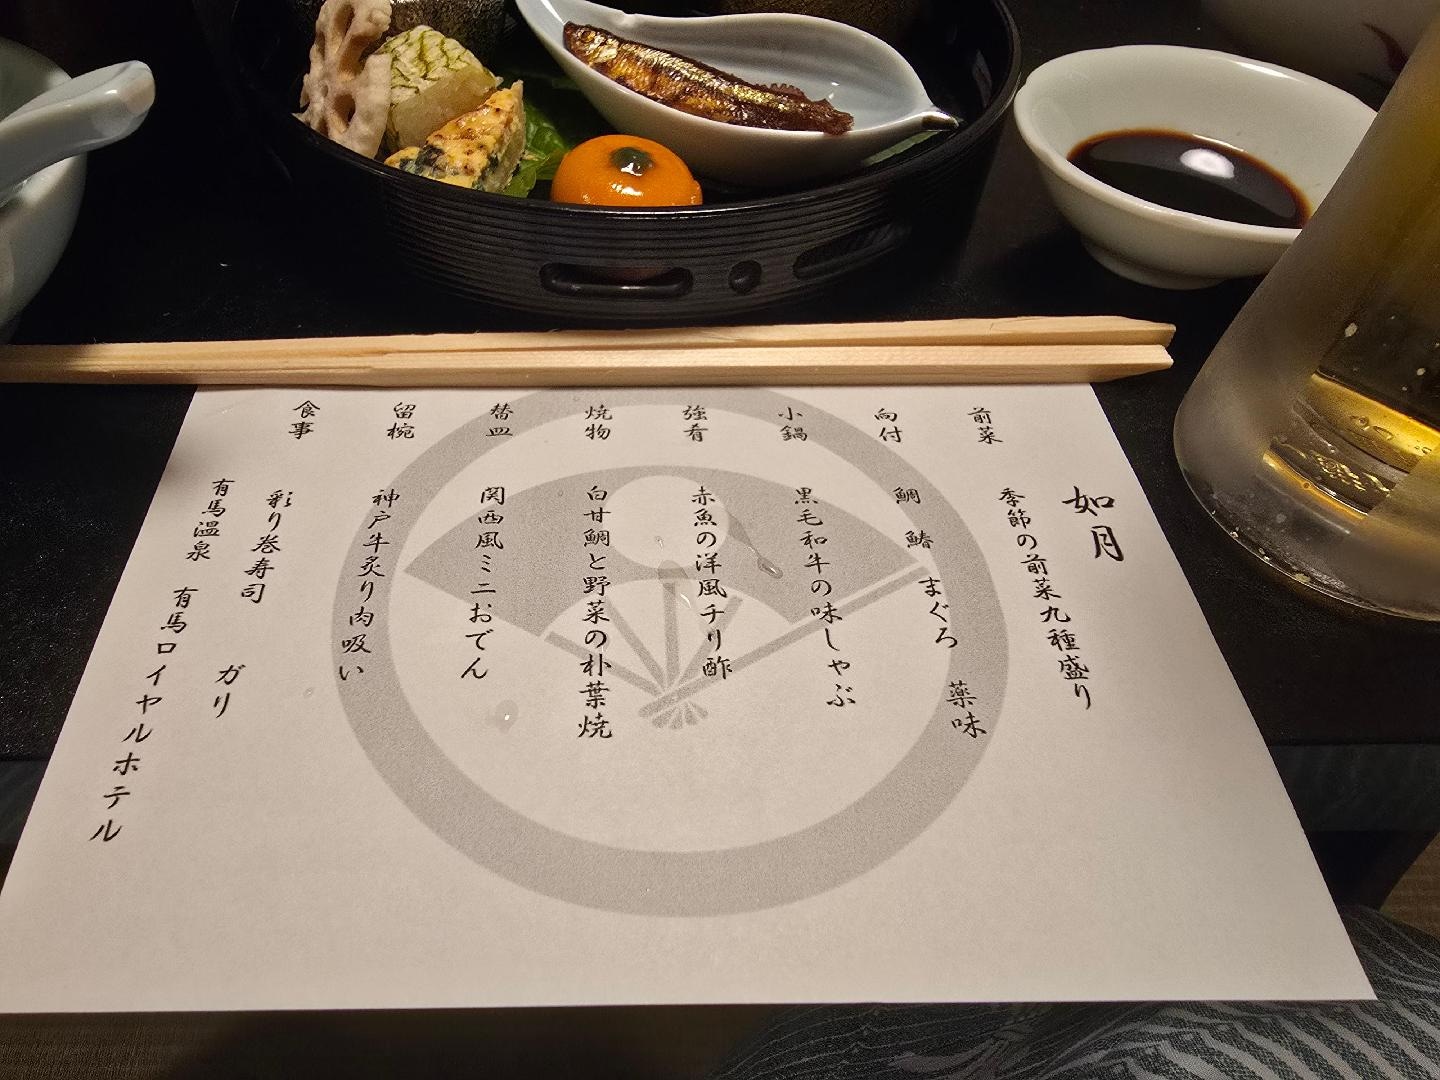 如月
前菜 季節の前菜九種盛り
向付 鯛 鰆 まぐろ 薬味
小鍋 黒毛和牛の味しゃぶ
強肴 赤魚の洋風チリ酢
焼物 白甘鯛と野菜の朴葉焼
替皿 関西風ミニおでん
留椀 神戸牛炙り肉吸い
食事 彩り巻寿司 ガリ
有馬温泉 有馬ロイヤルホテル